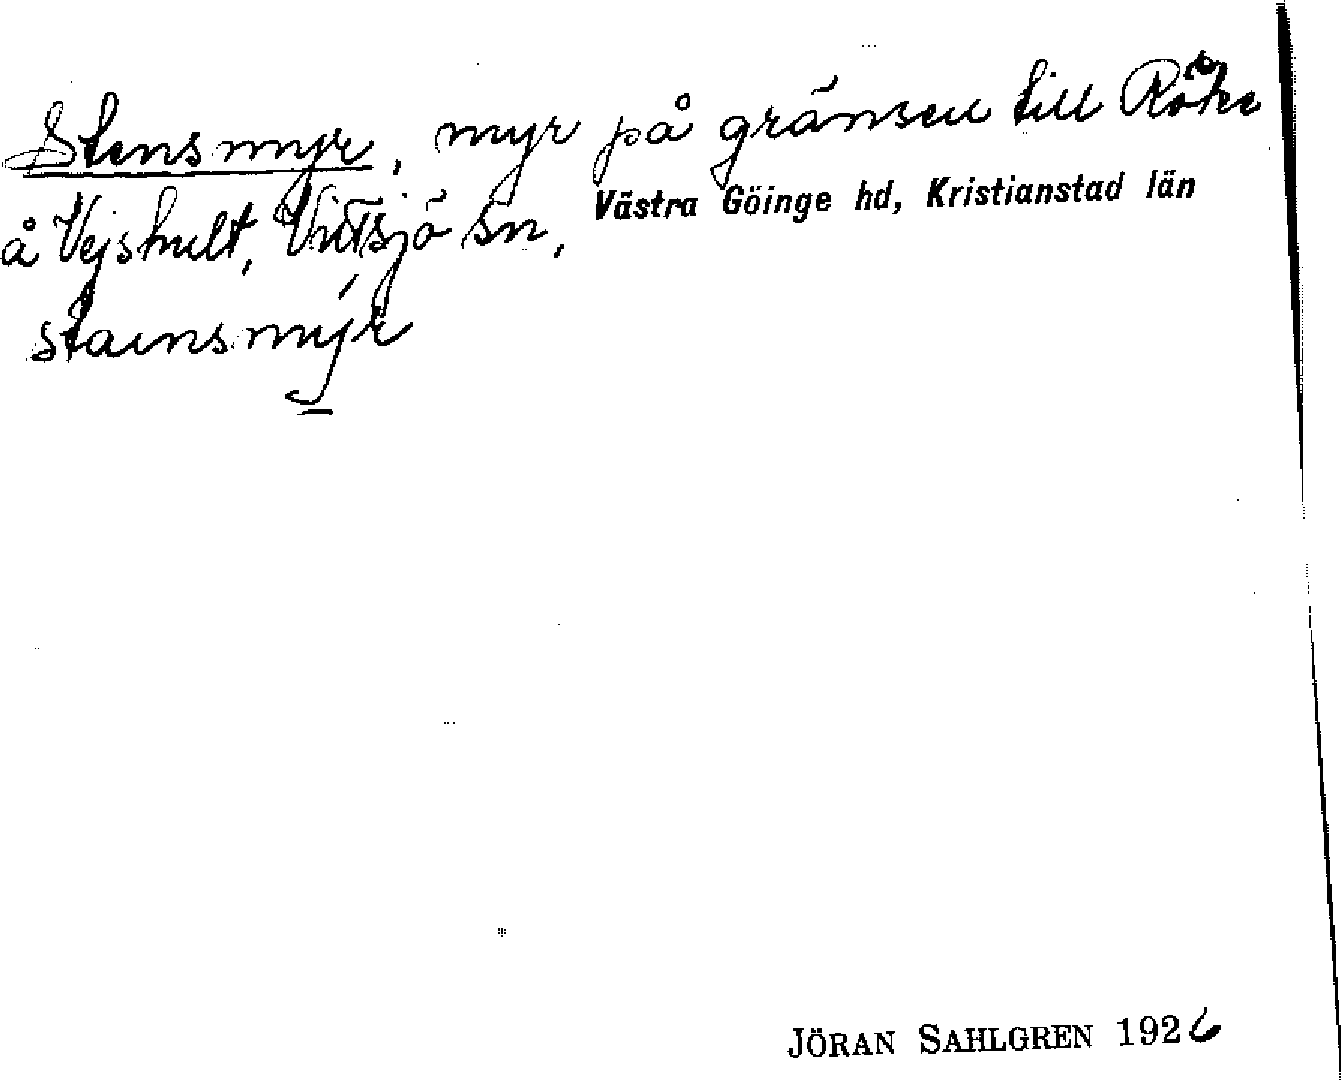 Stensmyr, myr på gränsen till Röke
å Vejshult, Vittsjö sn, Västra Göinge hd, Kristianstad län
stainsmýr
JÖRAN SAHLGREN 1926